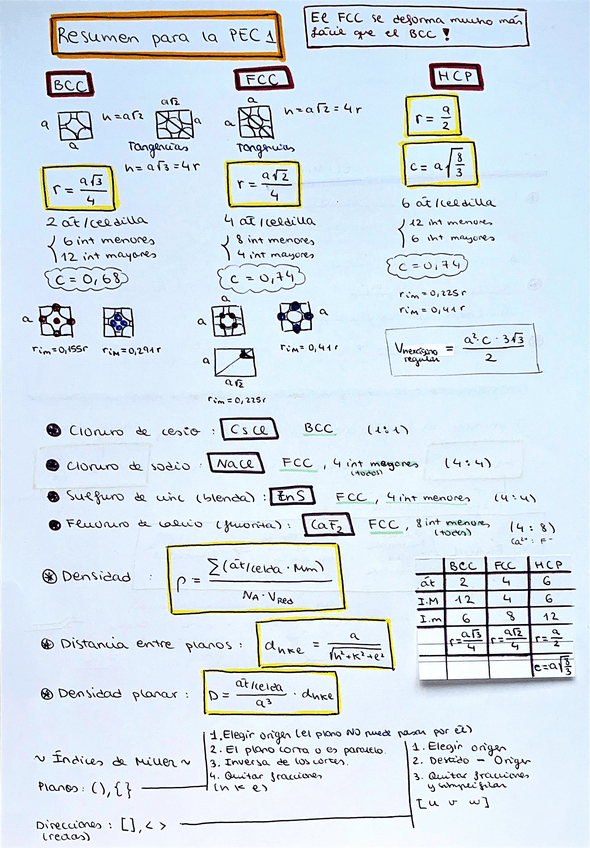 Resumen para la PEC 1
El FCC se deforma mucho más
fácil que el BCC !
BCC
FCC
HCP
a
a
h = a√2
a√2
a
Tangencias
h = a√3 = 4r
a
h = a√2 = 4r
Tangencias
r = a/2
c = a√(8/3)
r = a√3/4
r = a√2/4
2 at/celdilla
6 int menores
12 int mayores
C = 0,68
4 at/celdilla
8 int menores
4 int mayores
C = 0,74
6 at/celdilla
12 int menores
6 int mayores
C = 0,74
rim = 0,225r
riM = 0,41r
a
riM = 0,155r
rim = 0,291r
a
a
a
riM = 0,41r
a√2
rim = 0,225r
V hexágono regular = a²·c·3√3/2
Cloruro de cesio : CsCl BCC (1:1)
Cloruro de sodio : NaCl FCC, 4 int mayores (todos) (4:4)
Sulfuro de cinc (blenda) : ZnS FCC, 4 int menores (4:4)
Fluoruro de calcio (fluorita) : CaF₂ FCC, 8 int menores (todos) (4:8)
Ca²⁺ : F⁻
Densidad : ρ = Σ(at/celda · Mm) / NA · VRed
BCC FCC HCP
at 2 4 6
I.M 12 4 6
I.m 6 8 12
r=a√3/4 r=a√2/4 r=a/2
c=a√(8/3)
Distancia entre planos : dhkl = a/√(h²+k²+l²)
Densidad planar : D = at/celda / a³ · dhkl
~ Índices de Miller ~
Planos : ( ), { }
1. Elegir origen (el plano NO puede pasar por él)
2. El plano corta o es paralelo.
3. Inversa de los cortes.
4. Quitar fracciones
(h k l)
Direcciones : [ ], < >
(rectas)
1. Elegir origen
2. Destido - Origen
3. Quitar fracciones
y simplificar
[u v w]